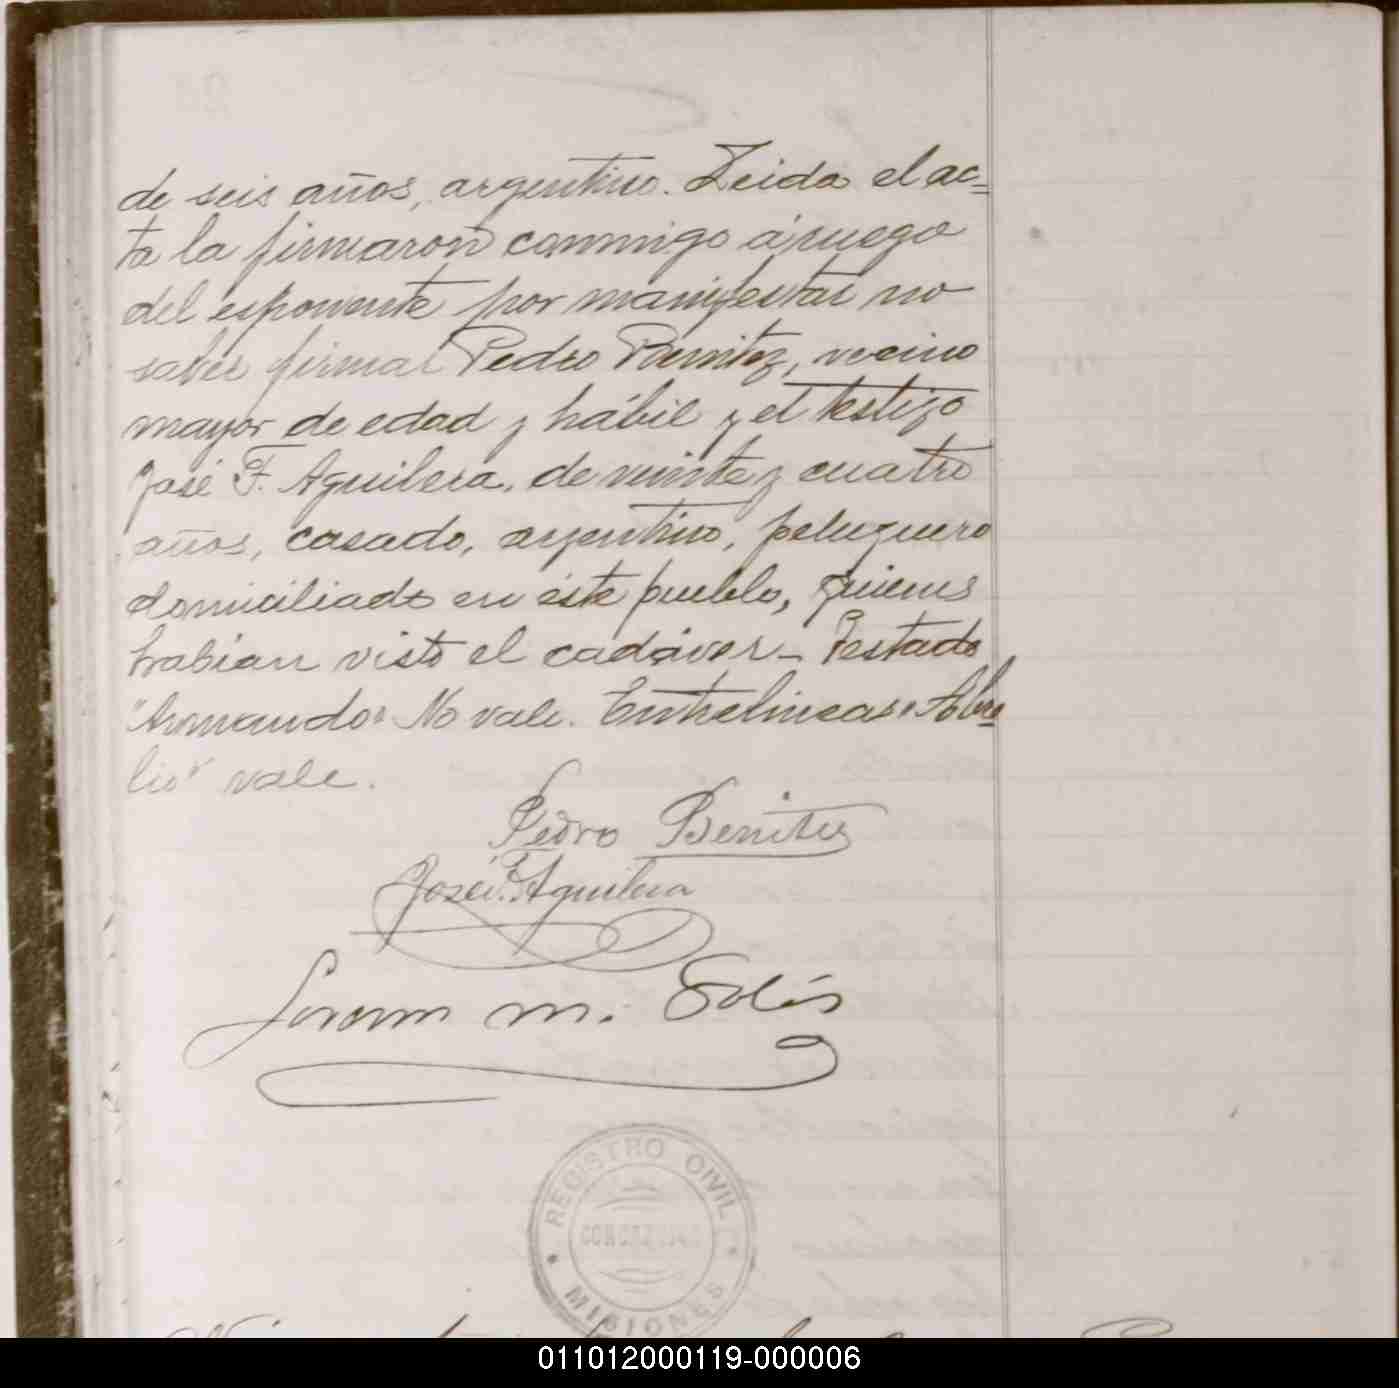 de seis años, argentino. Leida el ac=
ta la firmaron conmigo á ruego
del esponente por manifestar no
saber firmar Pedro Benitez, vecino
mayor de edad y hábil y el testigo
José F. Aguilera, de veinte y cuatro
años, casado, argentino, peluquero
domiciliado en éste pueblo, quienes
habían visto el cadáver_ Testado
"Armando" No vale. Entrelineas "Abre
lio" vale.
Pedro Benitez
José F. Aguilera
m. Solís
REGISTRO CIVIL
MISIONES
011012000119-000006